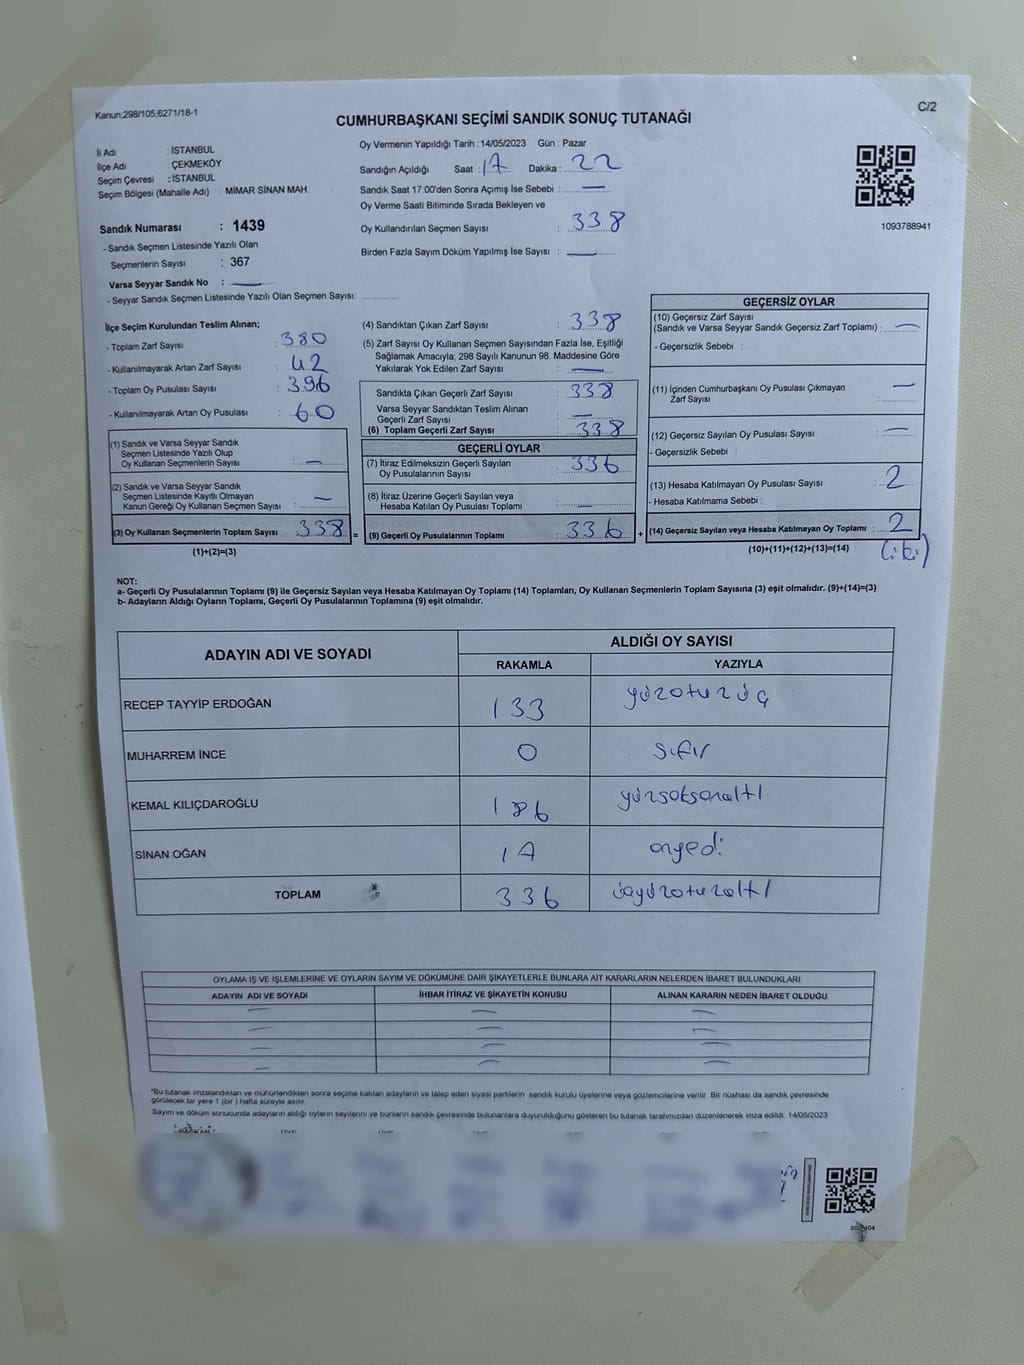 Kanun;298/105;6271/18-1
C/2
CUMHURBAŞKANI SEÇİMİ SANDIK SONUÇ TUTANAĞI
İl Adı : İSTANBUL
İlçe Adı : ÇEKMEKÖY
Seçim Çevresi : İSTANBUL
Seçim Bölgesi (Mahalle Adı) : MİMAR SİNAN MAH.
Sandık Numarası : 1439
- Sandık Seçmen Listesinde Yazılı Olan
Seçmenlerin Sayısı : 367
Varsa Seyyar Sandık No : —
- Seyyar Sandık Seçmen Listesinde Yazılı Olan Seçmen Sayısı:
Oy Vermenin Yapıldığı Tarih :14/05/2023 Gün : Pazar
Sandığın Açıldığı Saat : 17 Dakika : 22
Sandık Saat 17.00'den Sonra Açımış İse Sebebi : —
Oy Verme Saati Bitiminde Sırada Bekleyen ve
Oy Kullandırılan Seçmen Sayısı : 338
Birden Fazla Sayım Döküm Yapılmış İse Sayısı : —
1093788941
İlçe Seçim Kurulundan Teslim Alınan;
- Toplam Zarf Sayısı : 380
- Kullanılmayarak Artan Zarf Sayısı : 42
- Toplam Oy Pusulası Sayısı : 396
- Kullanılmayarak Artan Oy Pusulası : 60
(1) Sandık ve Varsa Seyyar Sandık
Seçmen Listesinde Yazılı Olup
Oy Kullanan Seçmenlerin Sayısı : —
(2) Sandık ve Varsa Seyyar Sandık
Seçmen Listesinde Kayıtlı Olmayan
Kanun Gereği Oy Kullanan Seçmen Sayısı : —
(3) Oy Kullanan Seçmenlerin Toplam Sayısı : 338
(1)+(2)=(3)
(4) Sandıktan Çıkan Zarf Sayısı : 338
(5) Zarf Sayısı Oy Kullanan Seçmen Sayısından Fazla İse, Eşitliği
Sağlamak Amacıyla, 298 Sayılı Kanunun 98. Maddesine Göre
Yakılarak Yok Edilen Zarf Sayısı : —
Sandıkta Çıkan Geçerli Zarf Sayısı : 338
Varsa Seyyar Sandıktan Teslim Alınan
Geçerli Zarf Sayısı : —
(6) Toplam Geçerli Zarf Sayısı : 338
GEÇERLİ OYLAR
(7) İtiraz Edilmeksizin Geçerli Sayılan
Oy Pusulalarının Sayısı : 336
(8) İtiraz Üzerine Geçerli Sayılan veya
Hesaba Katılan Oy Pusulası Toplamı : —
= (9) Geçerli Oy Pusulalarının Toplamı : 336 +
GEÇERSİZ OYLAR
(10) Geçersiz Zarf Sayısı
(Sandık ve Varsa Seyyar Sandık Geçersiz Zarf Toplamı) : —
- Geçersizlik Sebebi :
(11) İçinden Cumhurbaşkanı Oy Pusulası Çıkmayan
Zarf Sayısı : —
(12) Geçersiz Sayılan Oy Pusulası Sayısı : —
- Geçersizlik Sebebi :
(13) Hesaba Katılmayan Oy Pusulası Sayısı : 2
- Hesaba Katılmama Sebebi :
(14) Geçersiz Sayılan veya Hesaba Katılmayan Oy Toplamı : 2
(10)+(11)+(12)+(13)=(14) (iki)
NOT:
a- Geçerli Oy Pusulalarının Toplamı (9) ile Geçersiz Sayılan veya Hesaba Katılmayan Oy Toplamı (14) Toplamları, Oy Kullanan Seçmenlerin Toplam Sayısına (3) eşit olmalıdır. (9)+(14)=(3)
b- Adayların Aldığı Oyların Toplamı, Geçerli Oy Pusulalarının Toplamına (9) eşit olmalıdır.
ADAYIN ADI VE SOYADI
ALDIĞI OY SAYISI
RAKAMLA YAZIYLA
RECEP TAYYİP ERDOĞAN 133 yüzotuzüç
MUHARREM İNCE 0 sıfır
KEMAL KILIÇDAROĞLU 186 yüzseksenaltı
SİNAN OĞAN 17 onyedi
TOPLAM 336 üçyüzotuzaltı
OYLAMA İŞ VE İŞLEMLERİNE VE OYLARIN SAYIM VE DÖKÜMÜNE DAİR ŞİKAYETLERLE BUNLARA AİT KARARLARIN NELERDEN İBARET BULUNDUKLARI
ADAYIN ADI VE SOYADI İHBAR İTİRAZ VE ŞİKAYETİN KONUSU ALINAN KARARIN NEDEN İBARET OLDUĞU
— — —
— — —
— — —
— — —
*Bu tutanak imzalandıktan ve mühürlendikten sonra seçime katılan adayların ve talep eden siyasi partilerin sandık kurulu üyelerine veya gözlemcilerine verilir. Bir nüshası da sandık çevresinde
görülecek bir yere 1 (bir) hafta süreyle asılır.
Sayım ve döküm sonucunda adayların aldığı oyların sayılarını ve bunların sandık çevresinde bulunanlara duyurulduğunu gösteren bu tutanak tarafımızdan düzenlenerek imza edildi. 14/05/2023